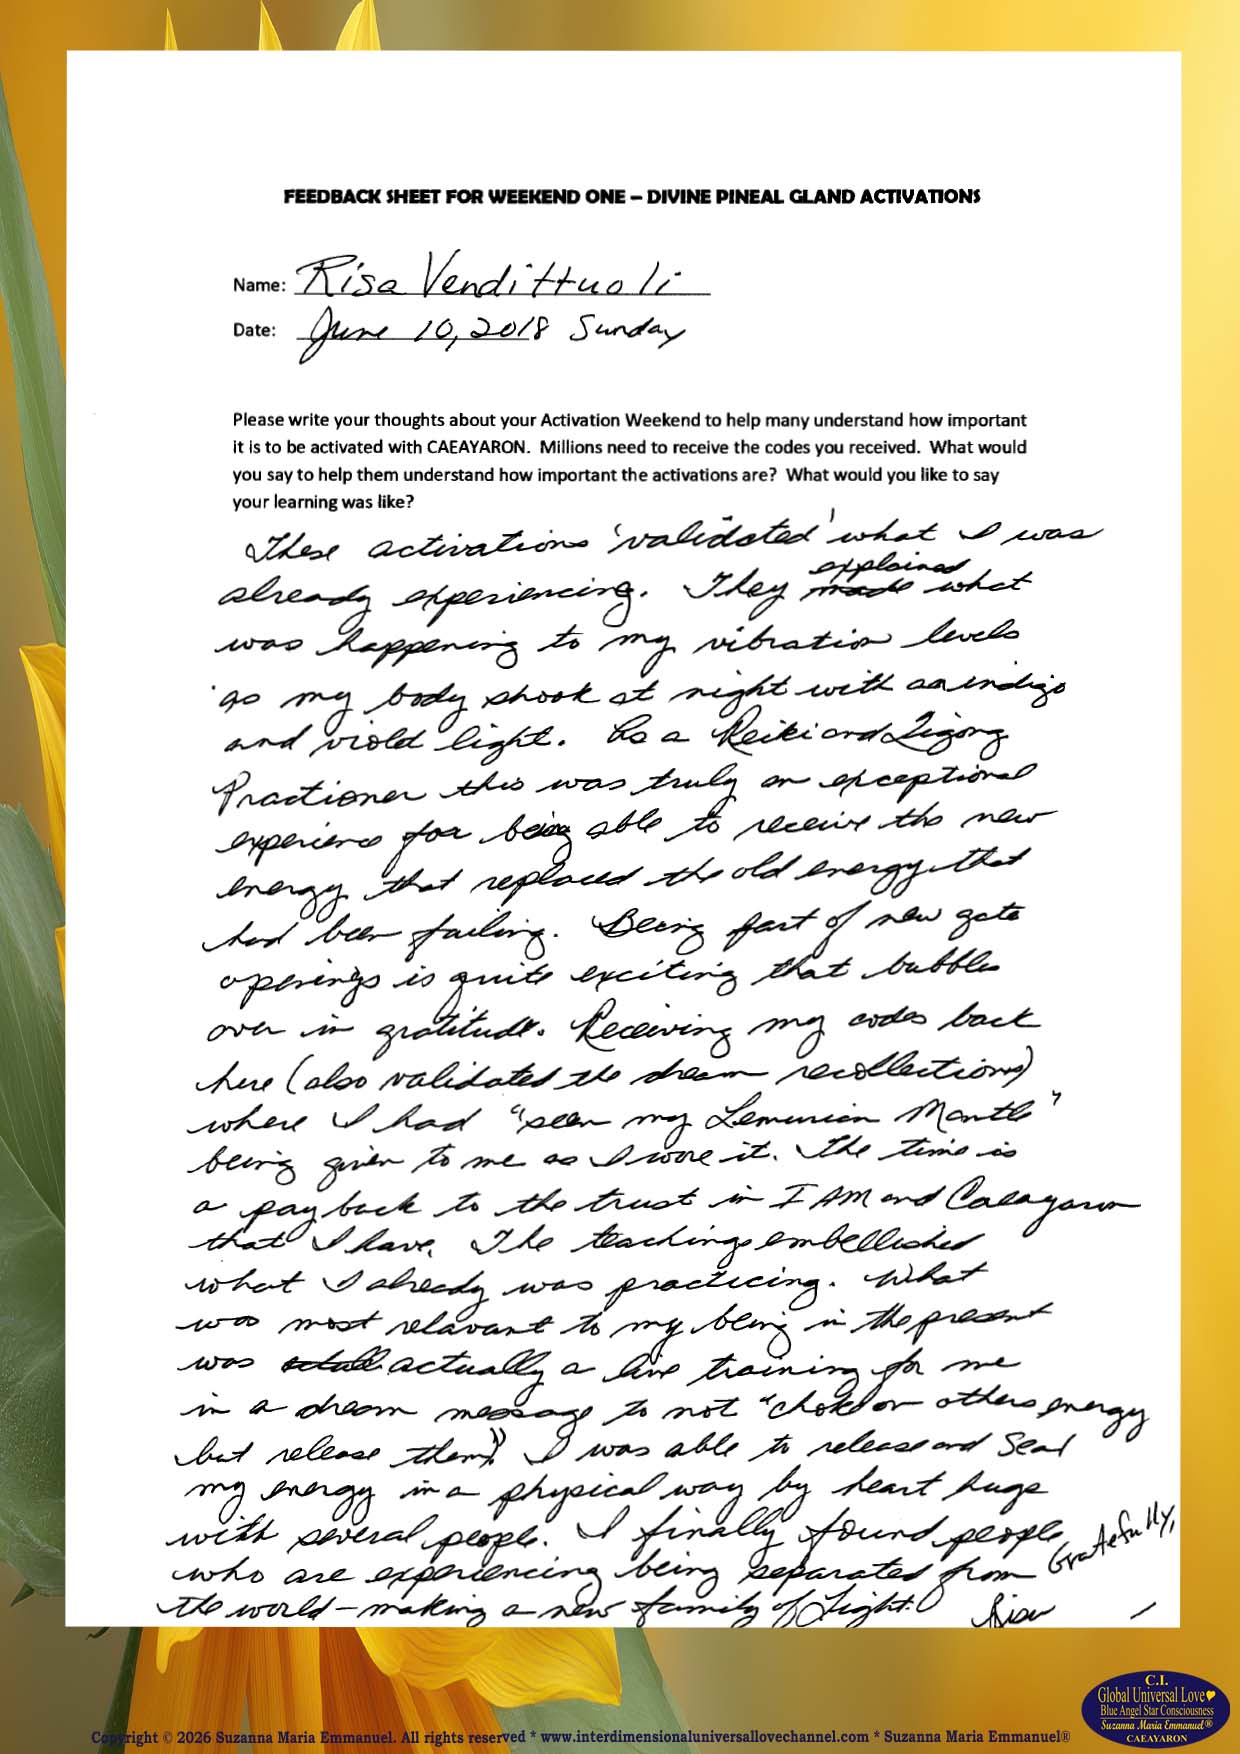 FEEDBACK SHEET FOR WEEKEND ONE – DIVINE PINEAL GLAND ACTIVATIONS
Name: Risa Vendittuoli
Date: June 10, 2018 Sunday
Please write your thoughts about your Activation Weekend to help many understand how important
it is to be activated with CAEAYARON. Millions need to receive the codes you received. What would
you say to help them understand how important the activations are? What would you like to say
your learning was like?
These activations 'validated' what I was
already experiencing. They made explained what
was happening to my vibration levels
as my body shook at night with an indigo
and viold light. As a Reiki and Qigong
Practioner this was truly an exceptional
experience for being able to receive the new
energy that replaced the old energy that
had been failing. Being part of new gate
openings is quite exciting that bubbles
over in gratitude. Receiving my codes back
here (also validated the dream recollections)
where I had "seen my Lemurian Mantle"
being given to me as I wore it. The time is
a payback to the trust in I AM and Caeayaron
that I have. The teachings embellished
what I already was practicing. What
was most relavant to my being in the present
was actually a live training for me
in a dream message to not "choke on others energy
but release them". I was able to release and seal
my energy in a physical way by heart hugs
with several people. I finally found people
who are experiencing being separated from
the world – making a new family of Light!
Gratefully,
Risa
Copyright © 2026 Suzanna Maria Emmanuel. All rights reserved * www.interdimensionaluniversallovechannel.com * Suzanna Maria Emmanuel®
C.I.
Global Universal Love
Blue Angel Star Consciousness
Suzanna Maria Emmanuel®
CAEAYARON